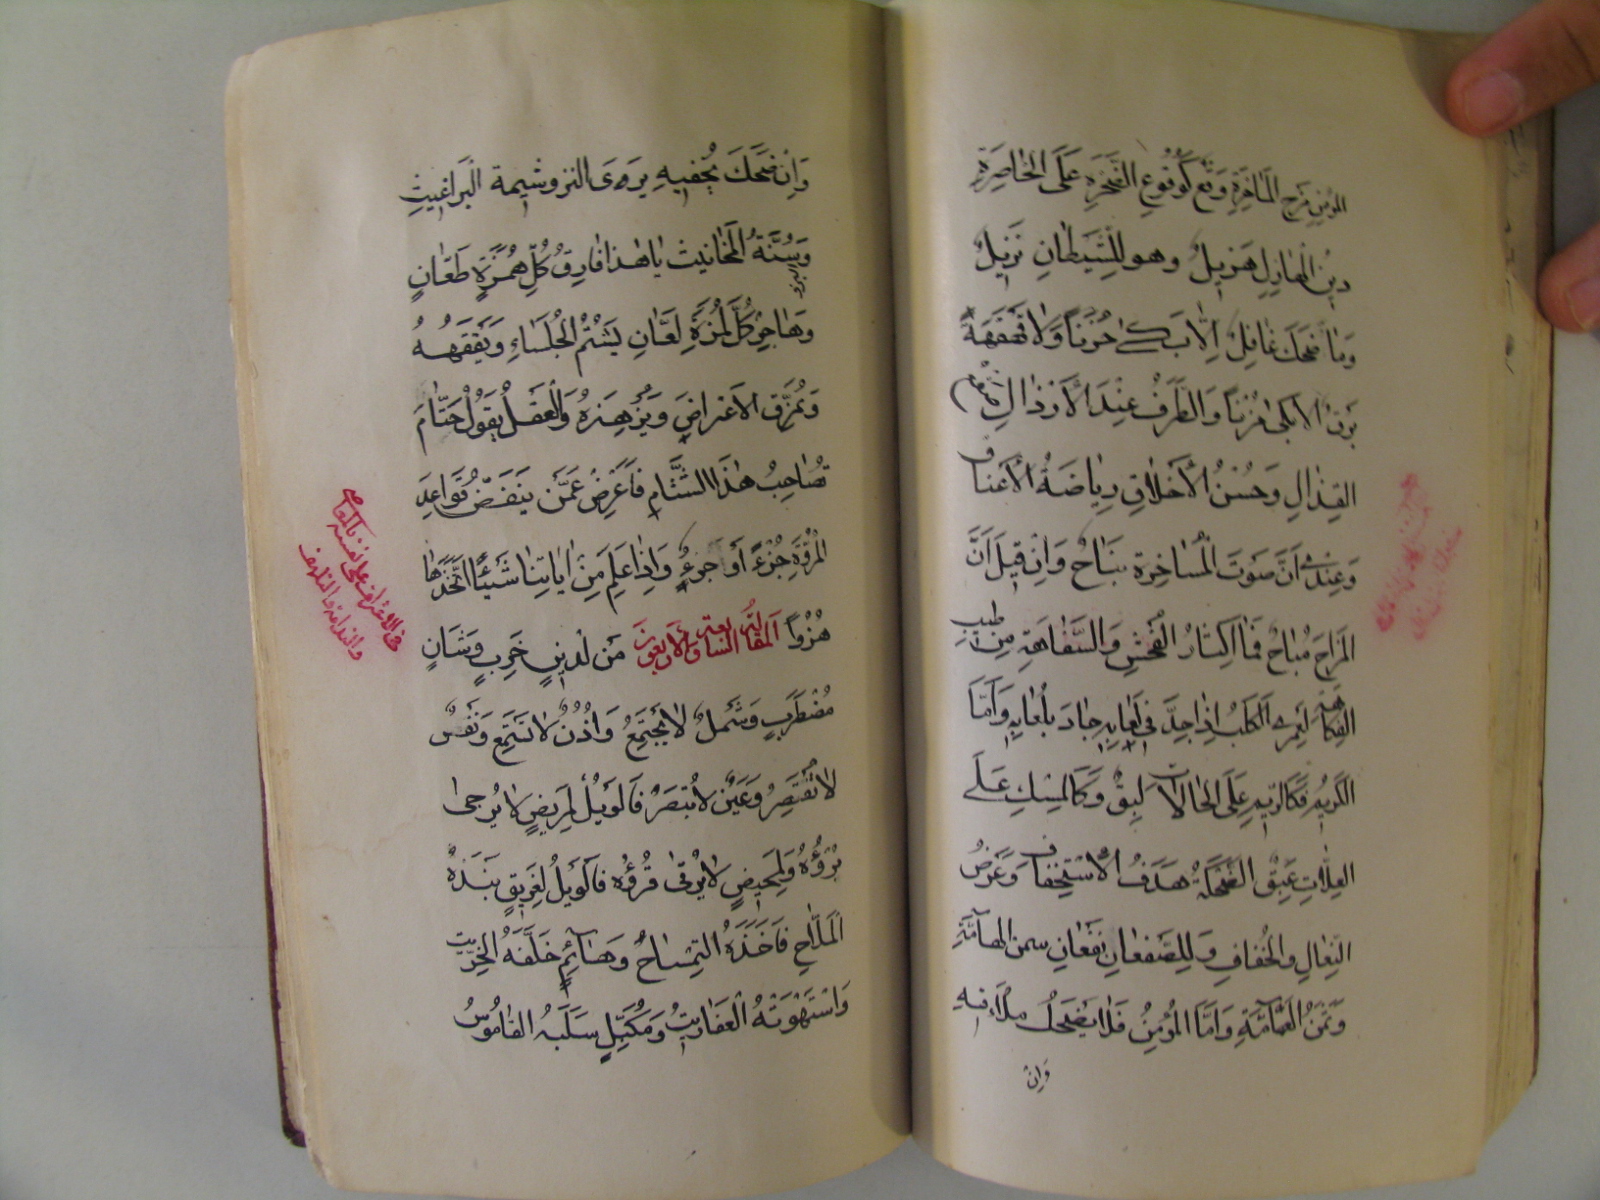 المؤمن مزح الماخرة وقع كوقوع الصخرة على الخاصرة
دين الهازل هزيل وهو للشيطان نزيل
وما ضحك غافل الا بكى حزنا ولا قهقهة
برق الا بكى مزنا والظرف عند الارذال
القذال وحسن الاخلاق رياضة الاعناق
وعندى ان صوت المساخرة نباح وان قيل ان
المزاح مباح فما اكثار الفحش والسفاهة من طيب
الفكاهة لعمرى الكلب اذا جد فى لعابه جاد بلعابه واما
الكريم فكالريم على الحالات لبق وكالمسك على
العلات عبق الضحكة هدف الاستخفاف وعرض
النعال والخفاف وللصفعان نفعان سمن الهامة
وثمن العمامة واما المؤمن فلا يضحك ملء فيه
وان
وان ضحك يخفيه يروى النزو شيمة البراغيث
وسنة المخانيث يا هذا فارق كل همزة طعان
وهاجر كل لمزة لعان يشتم الجلساء ويقهقه
ويمزق الاعراض ويزهزه والعقل يقول حتام
تصاحب هذا الشتام فاعرض عمن ينقض قواعد
المروة جزء او جزء واذا علم من اياتنا شيئا اتخذها
هزوا المقالة السادسة والاربعون من لدين خرب وشان
مضطرب وشمل لا يجتمع واذن لا تستمع ونفس
لا تقتصر وعين لا تبصر فالويل لمريض لا يرجى
برؤه ولمحيض لا يرقى قروؤه فالويل لغريق نبذه
الملاح فاخذه التمساح وهائم خلفه الخريت
واستهوته العفاريت ومكبل سلبه القاموس
فى الاعتراف على نفسه بالمعاصى
والندامة والتلهف